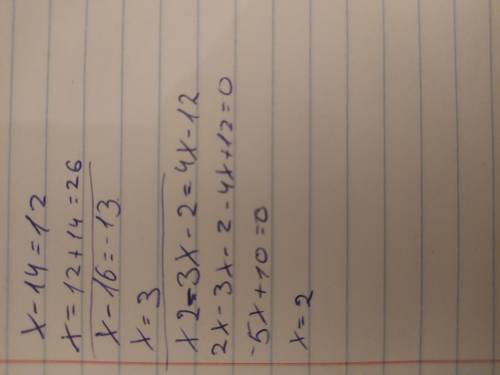 x-14=12
x=12+14=26
x-16=-13
x=3
x2-3x-2=4x-12
2x-3x-2-4x+12=0
-5x+10=0
x=2